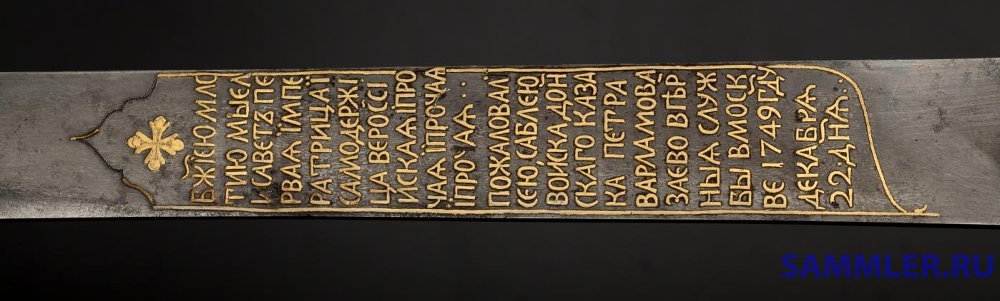 БЖ҃ІЕЮ МЛС
ТИЮ МЫ ЕЛ
ИСАВЕТЪ ПЕ
РВАѦ ЇМПЕ
РАТРИЦАЇ
САМОДЕРЖІ
ЦА ВЕРОССІ
ИСКАѦ ІПРО
ЧАѦ ІПРОЧАѦ
ІПРОЧАѦ...
ПОЖАЛОВАЛІ
СЕЮ САБЛЕЮ
ВОЙСКА ДОН
СКАГО КАЗА
КА ПЕТРА
ВАРЛАМОВА
ЗАЕВО ВѢР
НЫѦ СЛУЖ
БЫ ВМОСК
ВЕ 1749 ГДУ
ДЕКАБРѦ
22 ДНѦ.
SAMMLER.RU